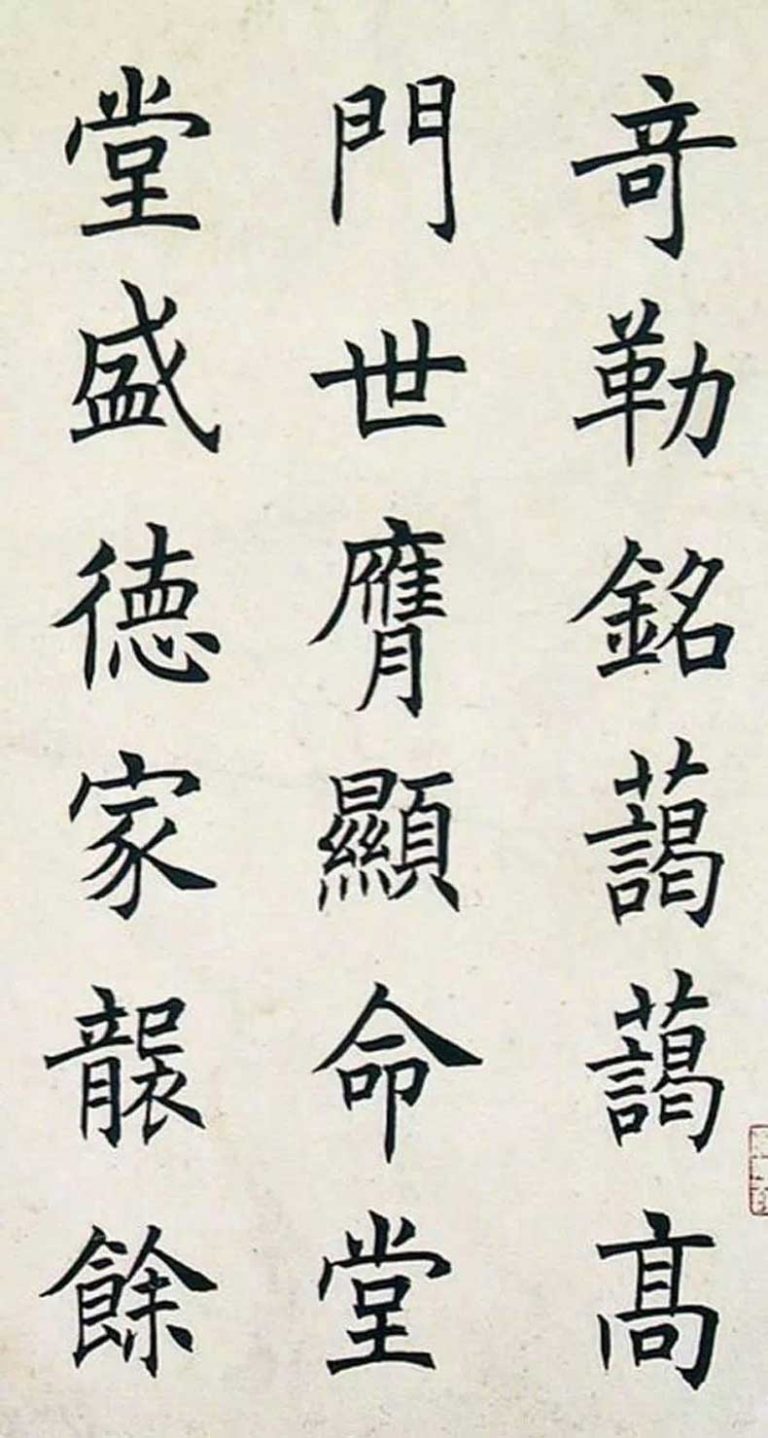 竒勒銘藹藹高
門世膺顯命堂
堂盛德家襲餘